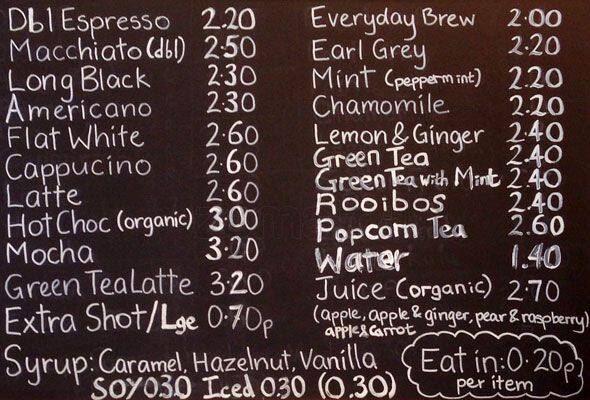 Dbl Espresso 2.20
Macchiato (dbl) 2.50
Long Black 2.30
Americano 2.30
Flat White 2.60
Cappucino 2.60
Latte 2.60
Hot Choc (organic) 3.00
Mocha 3.20
Green Tea Latte 3.20
Extra Shot/Lge 0.70p
Everyday Brew 2.00
Earl Grey 2.20
Mint (peppermint) 2.20
Chamomile 2.20
Lemon & Ginger 2.40
Green Tea 2.40
Green Tea with Mint 2.40
Rooibos 2.40
Popcorn Tea 2.60
Water 1.40
Juice (organic) 2.70
(apple, apple & ginger, pear & raspberry)
apple & carrot
Syrup: Caramel, Hazelnut, Vanilla
SOY 0.30 Iced 0.30 (0.30)
Eat in: 0.20p
per item